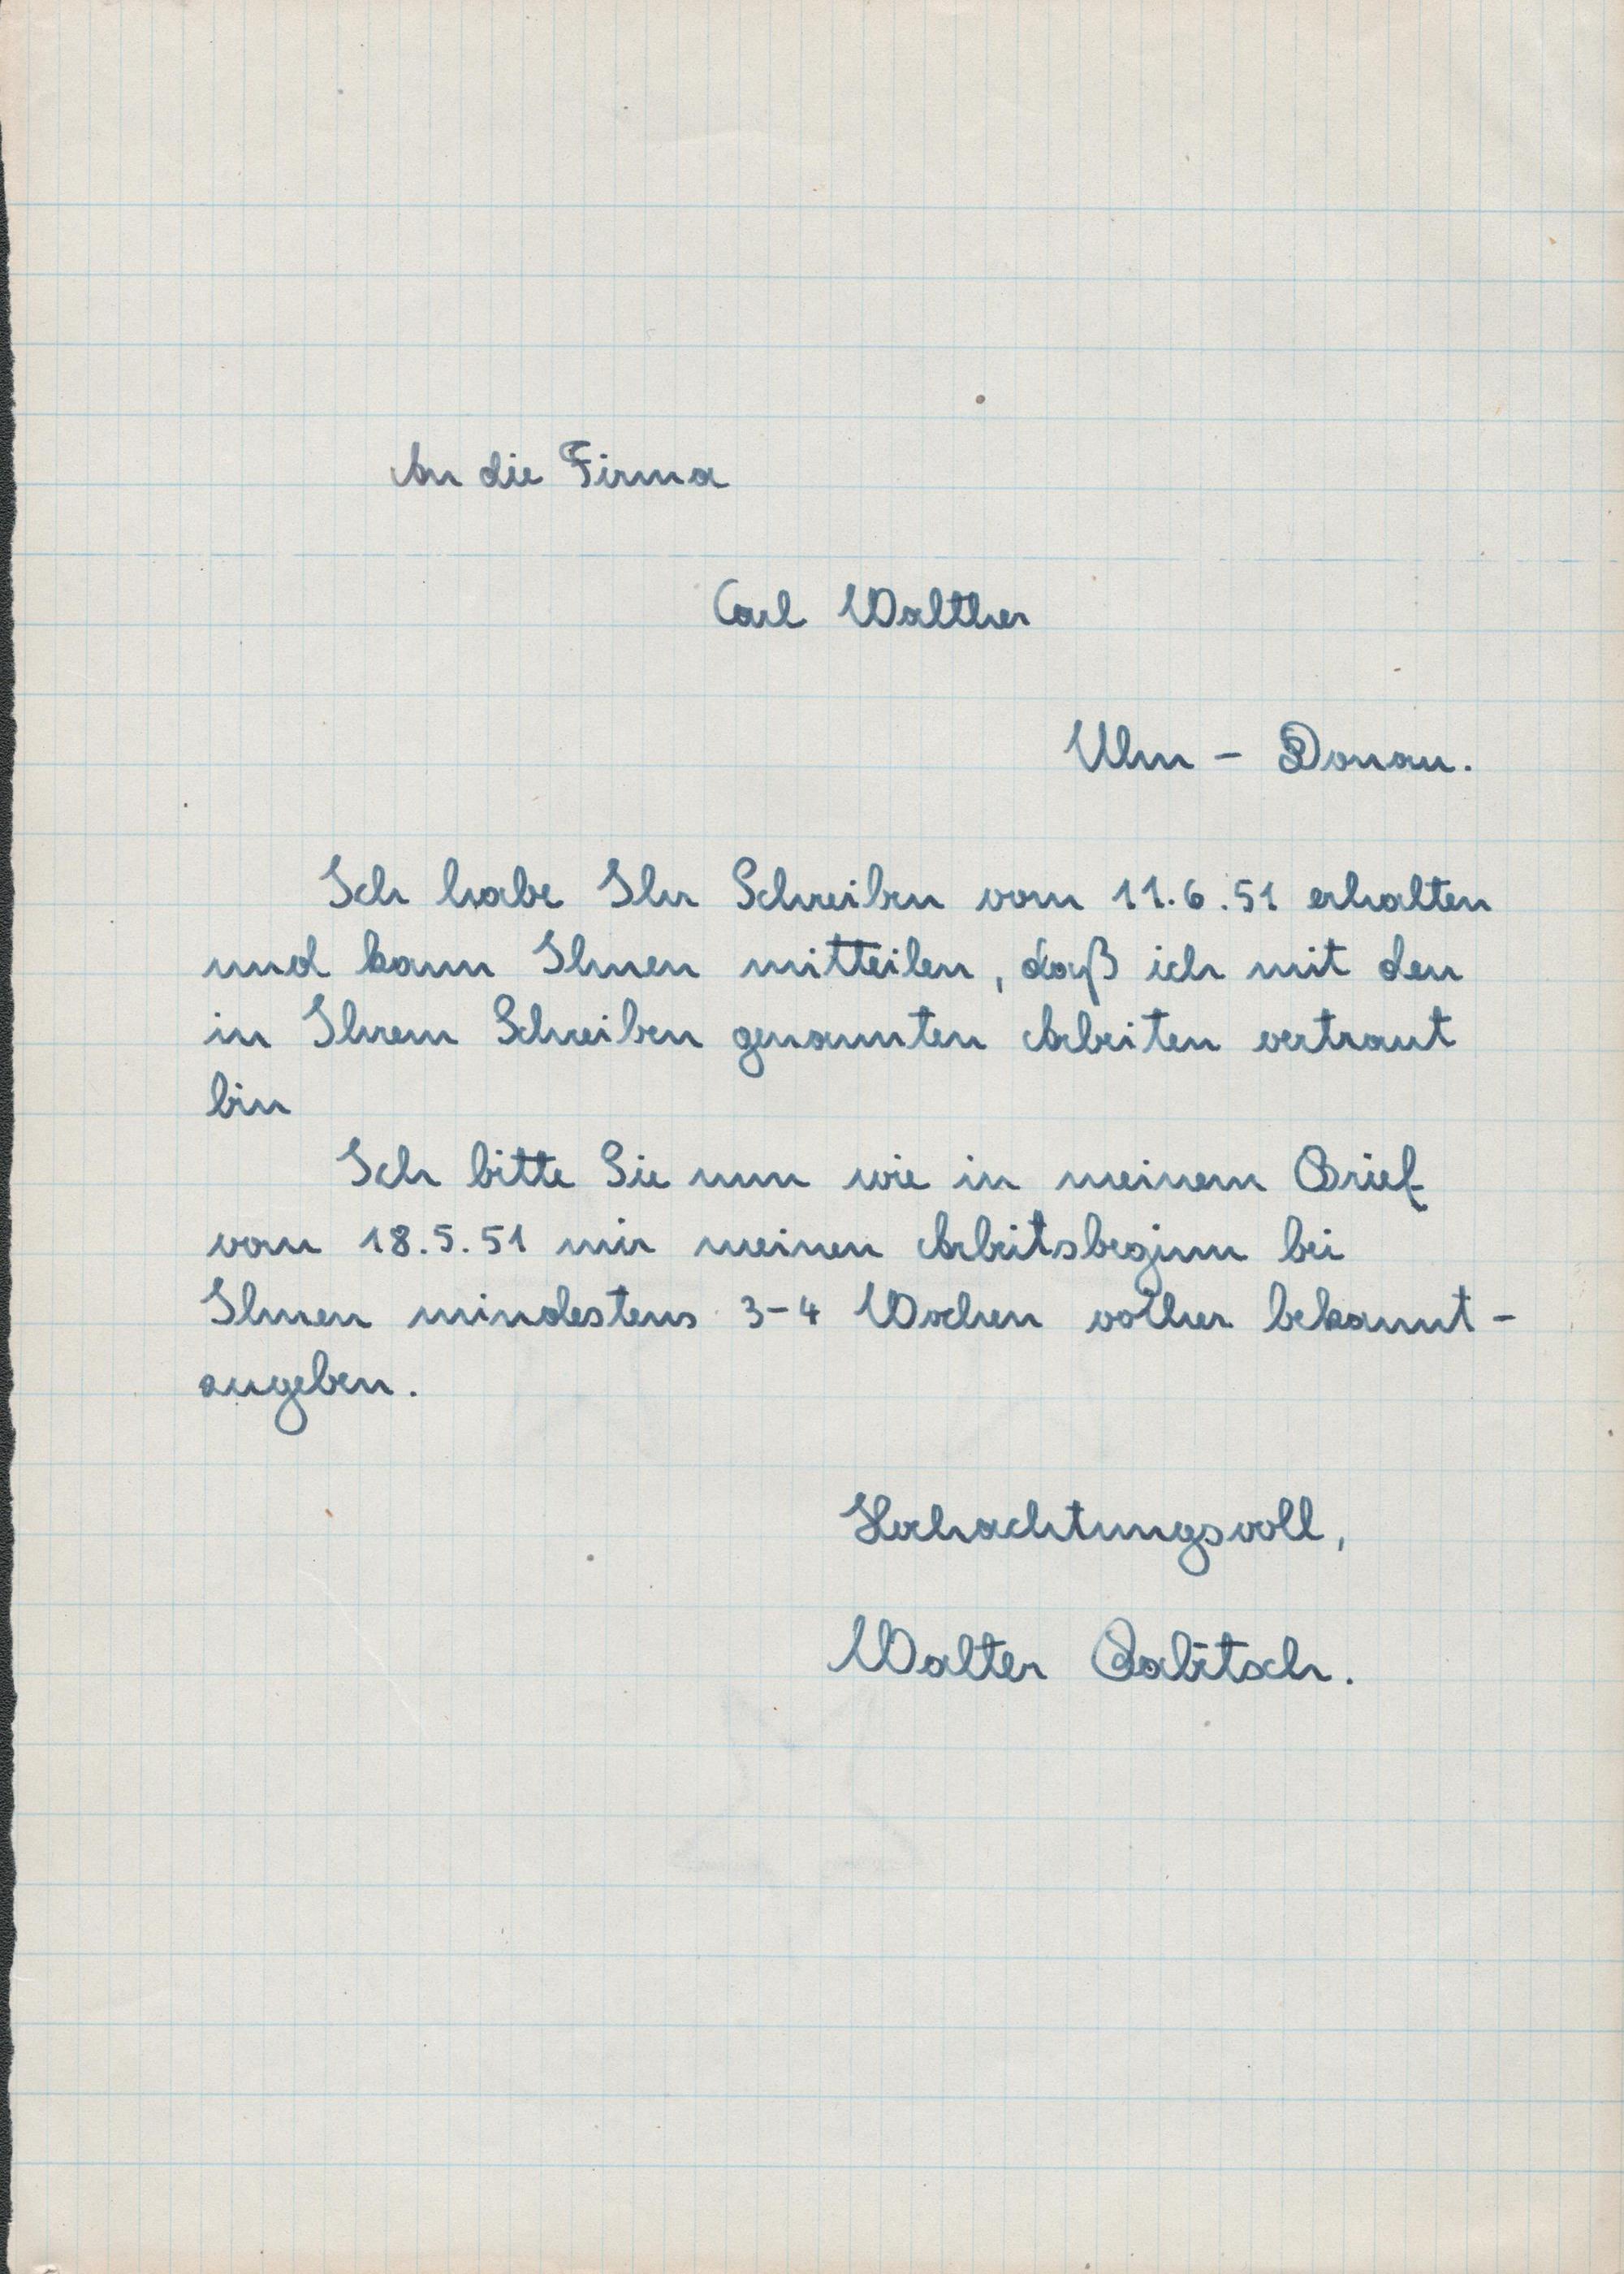 An die Firma
Carl Walther
Ulm - Donau.
Ich habe Ihr Schreiben vom 11.6.51 erhalten
und kann Ihnen mitteilen, daß ich mit den
in Ihrem Schreiben genannten Arbeiten vertraut
bin
Ich bitte Sie nun wie in meinem Brief
vom 18.5.51 mir meinen Arbeitsbeginn bei
Ihnen mindestens 3-4 Wochen vorher bekannt-
zugeben.
Hochachtungsvoll,
Walter